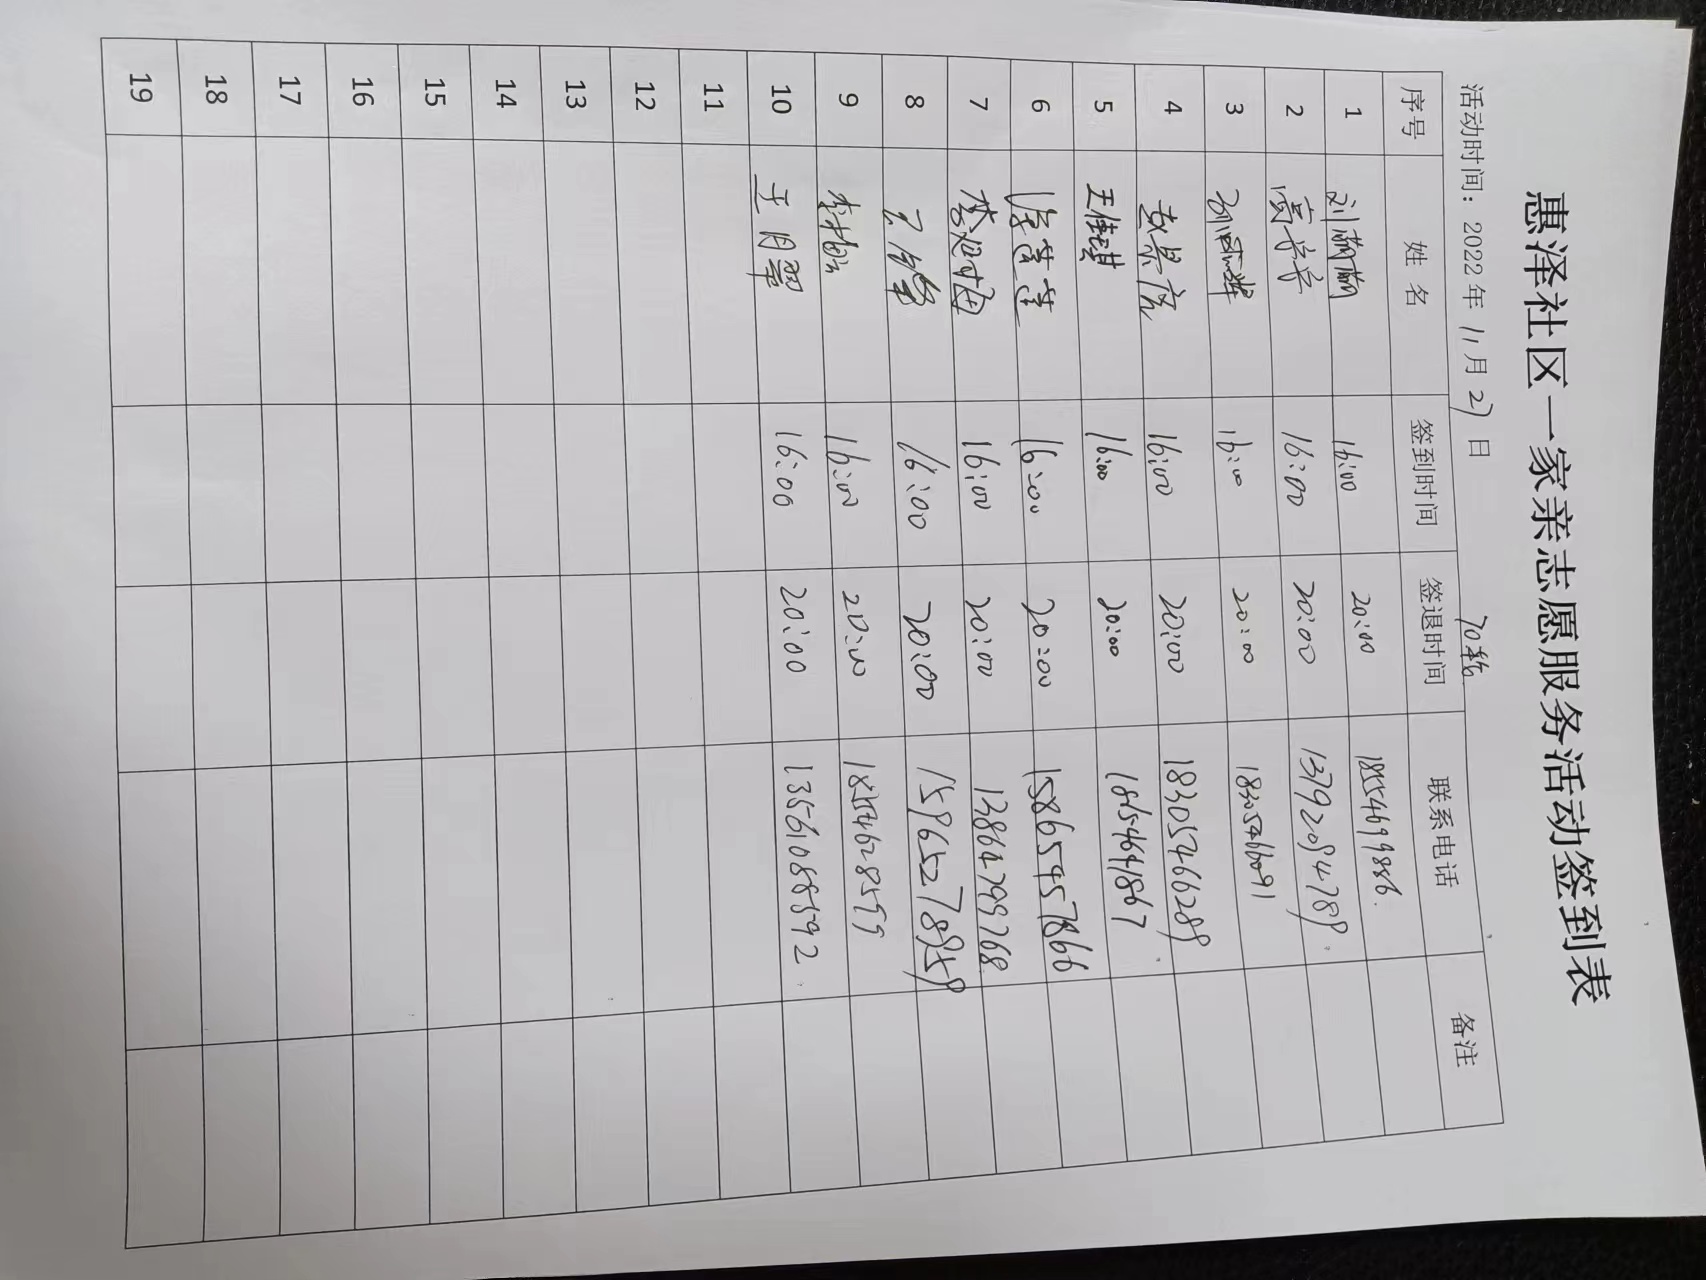 惠泽社区一家亲志愿服务活动签到表
活动时间：2022年 11月 27日
序号 姓名 签到时间 签退时间 联系电话 备注
1 刘潇潇 16:00 20:00 18554699886
2 16:00 20:00 13792094789
3 16:00 20:00 18305466091
4 16:00 20:00 18305466289
5 王佳琪 16:00 20:00 18654641867
6 16:00 20:00 15865457866
7 16:00 20:00 13864799768
8 16:00 20:00 15965278959
9 16:00 20:00 18554628599
10 王月翠 16:00 20:00 13561088592
11
12
13
14
15
16
17
18
19